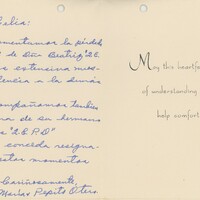 alia:
mentamos la pérdid
de Dña Beatriz "2E
extensiva
lencia a la demás
compañamos tambié
de su hermano
"2 E P D"
conceda resigna-
estos momentos
Cariñosamente,
Marías Pepito Otero
May this heartfe
of understanding
help comfort